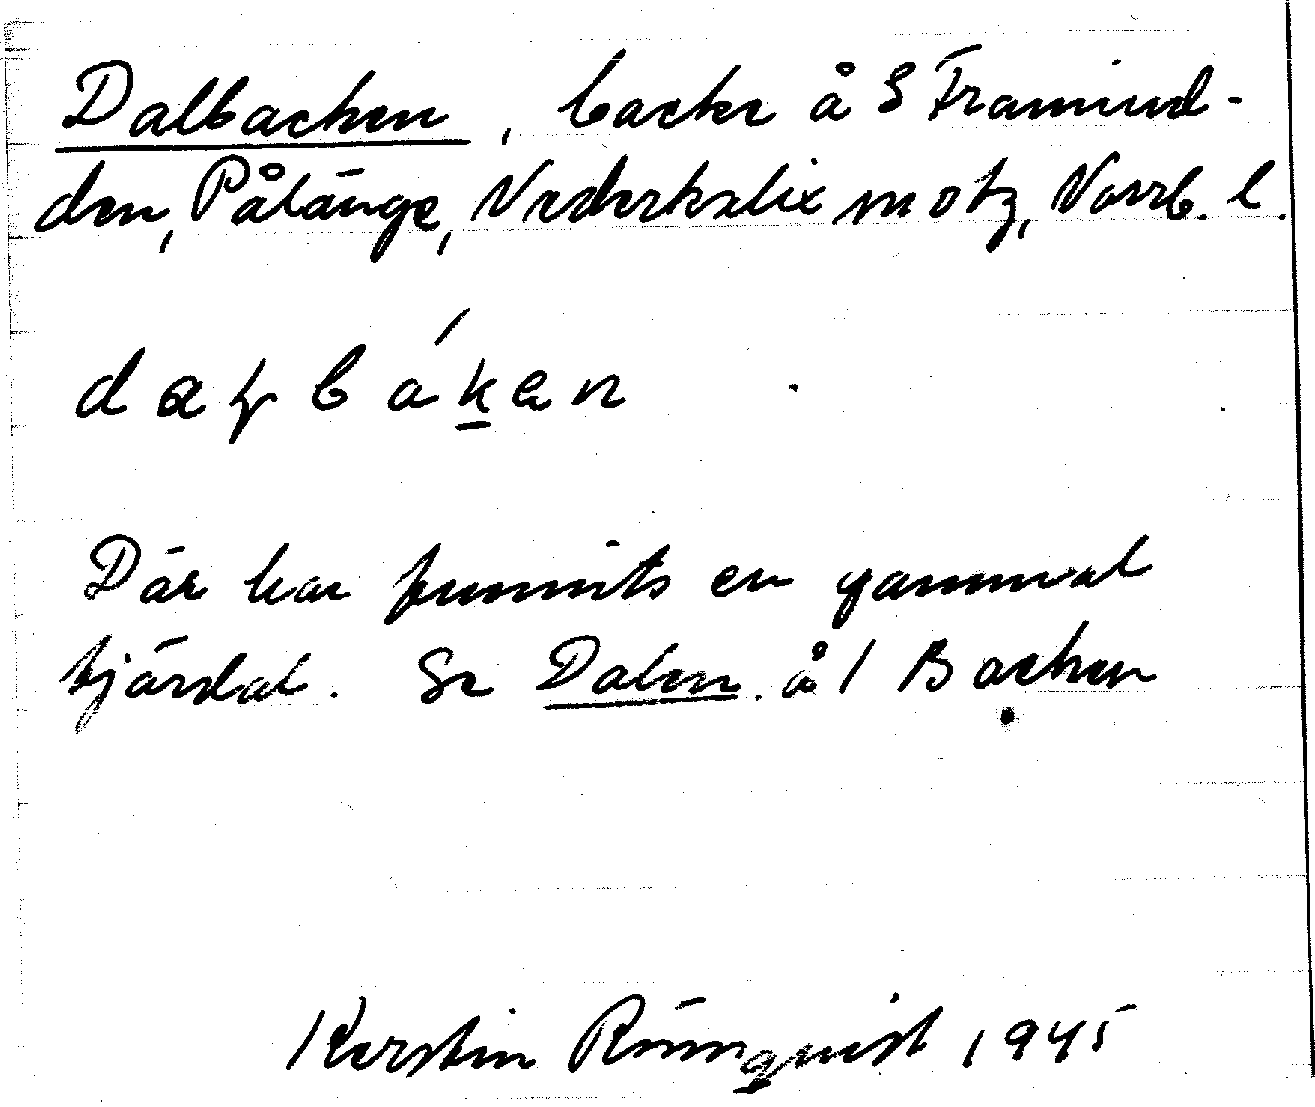 Dalbacken, backe å 8 Framänd-
den, Pålänge, Nederkalix sn o tg, Norrb. l.
Där har funnits en gammal
tjärdal. Se Dalen å 1 Backen
Kerstin Rönnquist 1945